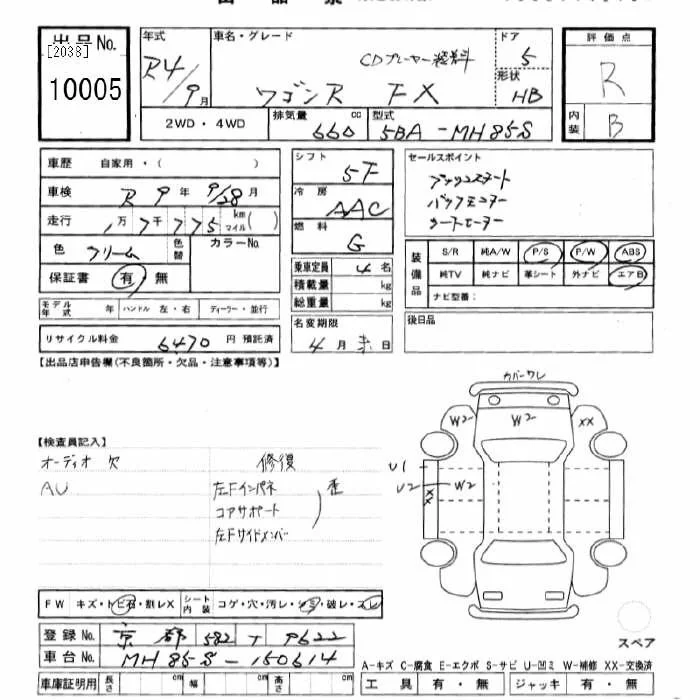 出品No.
[2038]
10005
年式
R4/9月
車名・グレード
CDプレーヤー装着
ワゴンR FX
ドア
5
形状
HB
評価点
R
内装
B
2WD・4WD
排気量
660
cc
型式
5BA-MH85S
車歴 自家用・( )
車検 R 9 年 9/28 月
走行 万 7 千 775 km マイル( )
色 クリーム 色替 カラーNo.
保証書 有・無
モデル年式 年 ハンドル 左・右 ディーラー・並行
リサイクル料金 6470 円 預託済
シフト
5F
冷房
AAC
燃料
G
乗車定員 4 名
積載量 kg
総重量 kg
名変期限
4 月 末 日
セールスポイント
プッシュスタート
バックモニター
シートヒーター
装備品
S/R 純A/W P/S P/W ABS
純TV 純ナビ 革シート 外ナビ エアB
ナビ型番:
後日品
【出品店申告欄(不良箇所・欠品・注意事項等)】
【検査員記入】
オーディオ欠
AU
修復
左Fインパネ
コアサポート
左Fサイドメンバー
歪
カバーワレ
W2
W2
XX
U1
U2
XX
W2
FW キズ・トビ石・割レX シート内装 コゲ・穴・汚レ・シミ・破レ・スレ
登録No. 京都 582 9622
車台No. MH85S-150614
車庫証明用 長さ cm 幅 cm 高さ cm
スペア
A-キズ C-腐食 E-エクボ S-サビ U-凹ミ W-補修 XX-交換済
工具 有・無 ジャッキ 有・無